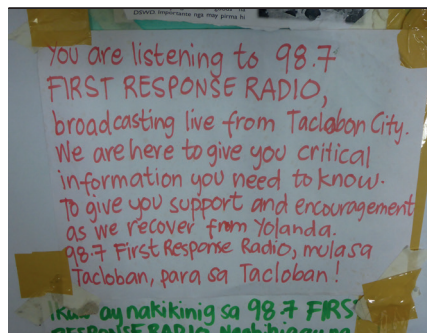 DSWD. Importante nga may pirma hi
You are listening to 98.7
FIRST RESPONSE RADIO,
broadcasting live from Tacloban City.
We are here to give you critical
information you need to know.
To give you support and encouragement
as we recover from Yolanda.
98.7 First Response Radio, mula sa
Tacloban, para sa Tacloban!
Ikaw ay nakikinig sa 98.7 FIRS
RESPONSE RADIO